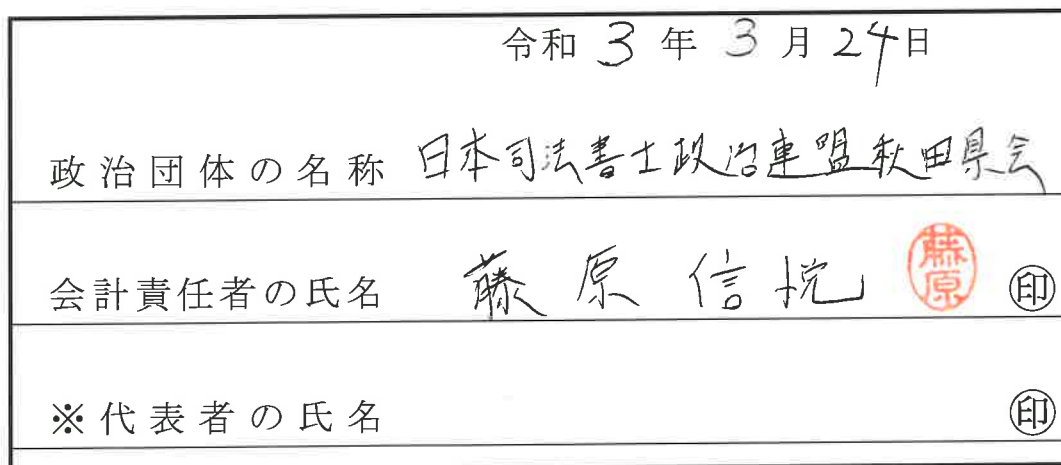 令和 3 年 3 月 24日
政治団体の名称 日本司法書士政治連盟秋田県会
会計責任者の氏名 藤原 信悦 藤原 ㊞
※代表者の氏名 ㊞